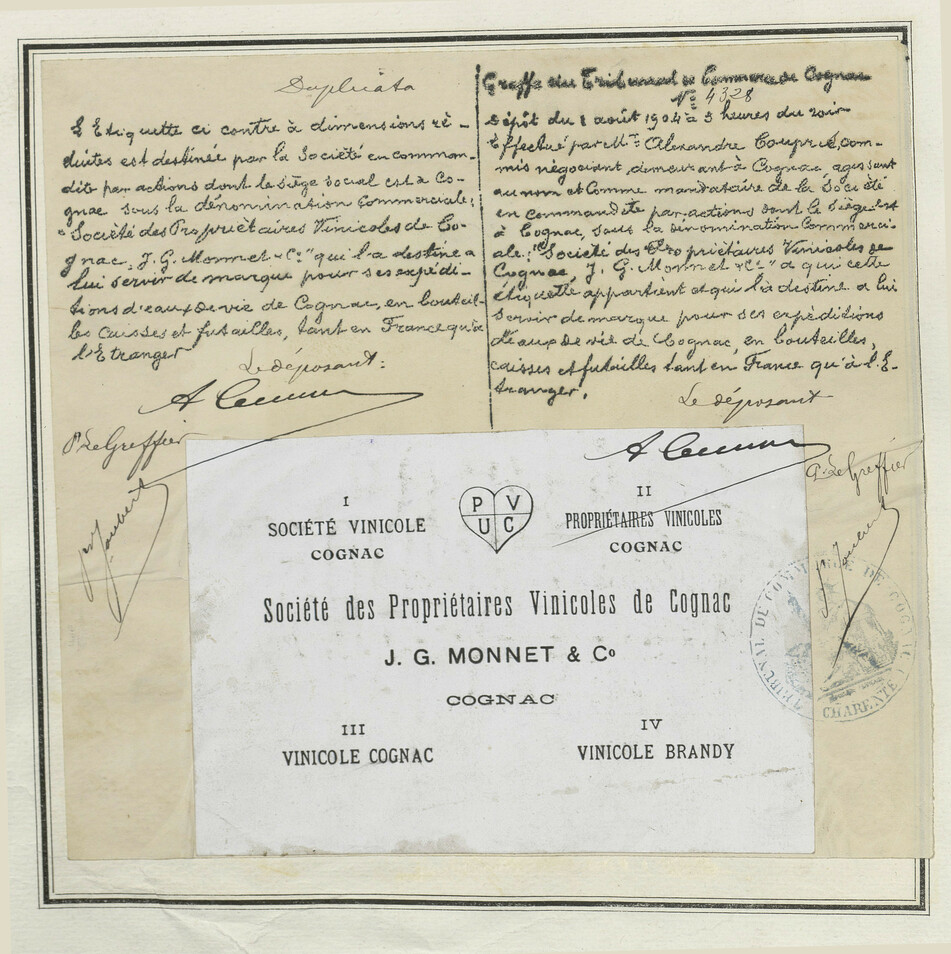 Duplicata
L'Etiquette ci contre à dimensions ré-
duites est destinée par la Société en comman-
dite par actions dont le siège social est a Co-
gnac sous la dénomination Commerciale:
"Société des Propriètaires Vinicoles de Co-
gnac, J. G. Monnet & Cie" qui l'a destine a
lui servir de marque pour ses expédi-
tions d'eaux de vie de Cognac, en bouteil-
les caisses et futailles, tant en France qu'à
l'Etranger
Le déposant:
Pr Le Greffier
Joubert
Greffe du Tribunal de Commerce de Cognac
No 4328
Dépôt du 1 août 1904 à 3 heures du soir
Effectué par Mr Alexandre Couprie, com-
mis négociant, demeurant à Cognac, agissant
au nom et Comme mandataire de la Société
en commandite par actions dont le siège est
à Cognac, sous la dénomination Commerci-
ale: "Société des Propriétaires Vinicoles de
Cognac, J. G. Monnet & Cie" a qui cette
étiquette appartient et qui l'a destine a lui
servir de marque pour ses expéditions
d'eaux de vie de Cognac, en bouteilles,
caisses et futailles tant en France qu'à l'E-
tranger.
Le déposant
Pr Le Greffier
Joubert
I
SOCIÉTÉ VINICOLE
COGNAC
P V
U C
II
PROPRIÉTAIRES VINICOLES
COGNAC
Société des Propriétaires Vinicoles de Cognac
J. G. MONNET & Co
COGNAC
III
VINICOLE COGNAC
IV
VINICOLE BRANDY
TRIBUNAL DE COMMERCE DE COGNAC
CHARENTE